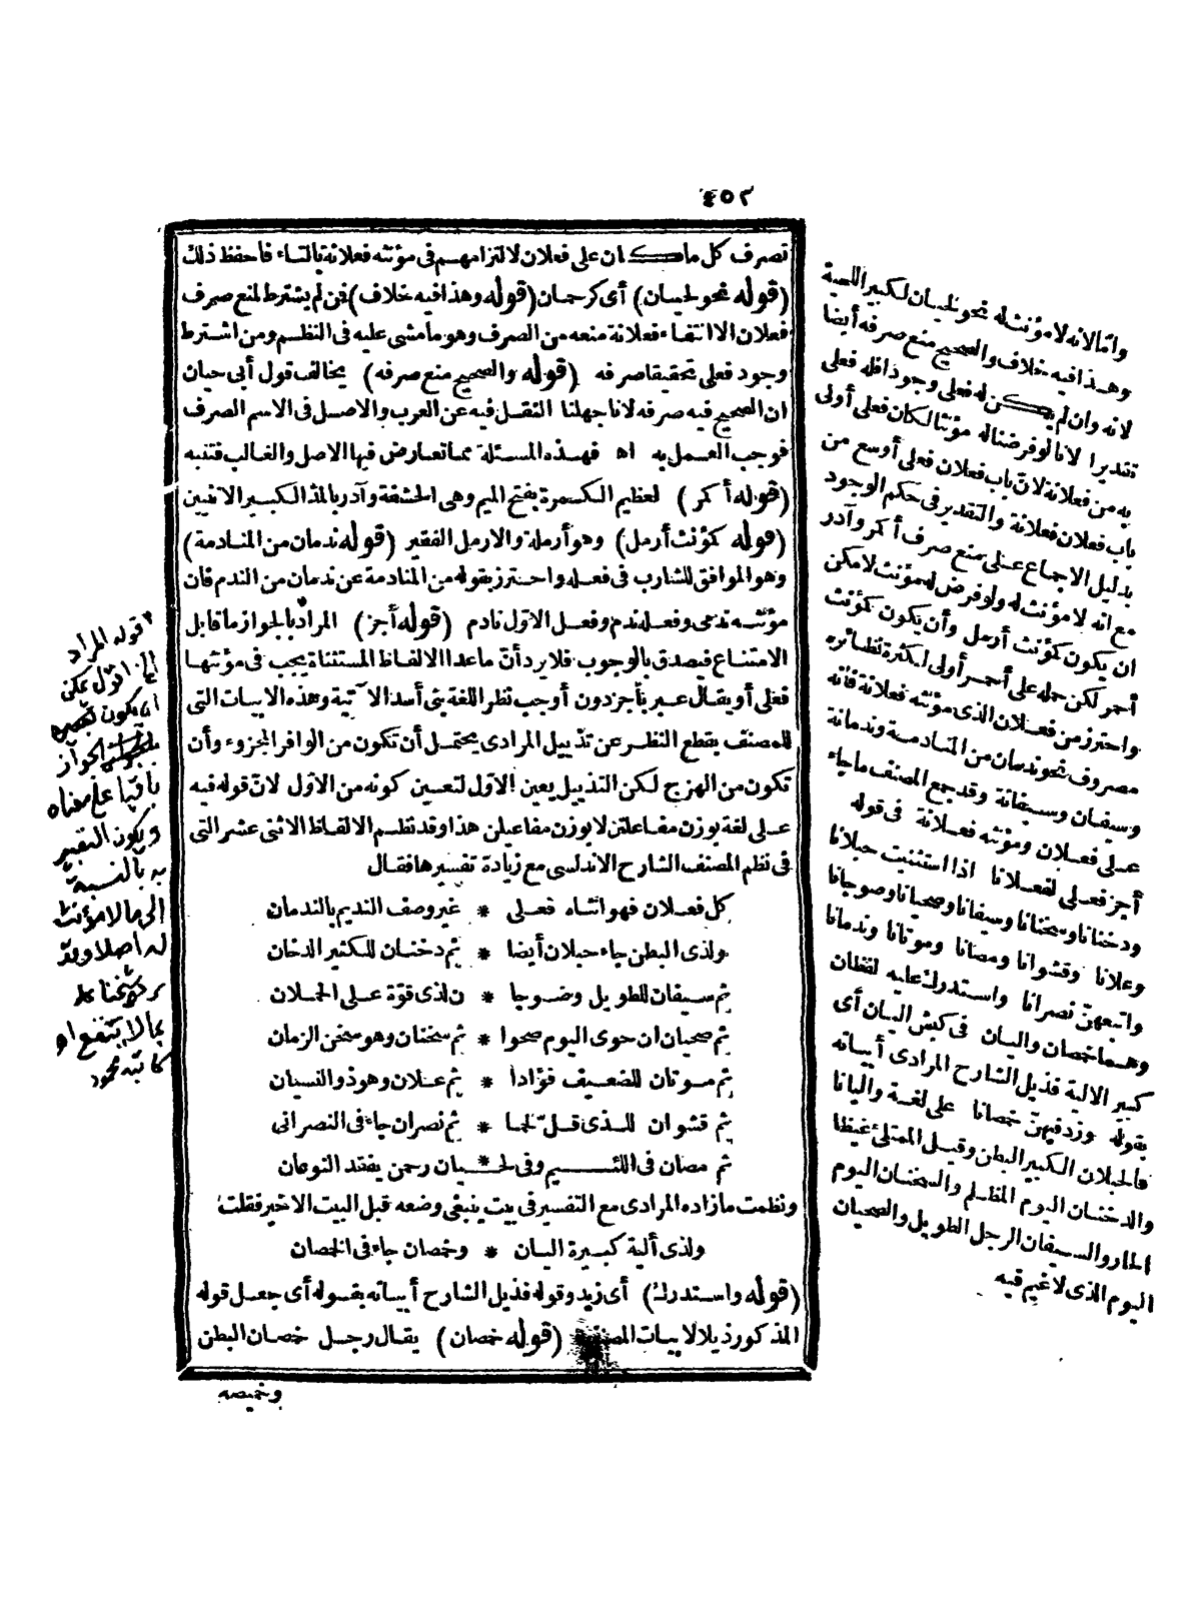 ٤٥٢
تصرف كل ما كان على فعلان لالتزامهم فى مؤنثه فعلانة بالتاء فاحفظ ذلك
(قوله نحو لحيان) أى كرحمان (قوله وهذا فيه خلاف) فمن لم يشترط لمنع صرف
فعلان الا انتفاء فعلانة منعه من الصرف وهو ما مشى عليه فى النظم ومن اشترط
وجود فعلى تحقيقا صرفه (قوله والصحيح منع صرفه) يخالف قول أبى حيان
ان الصحيح فيه صرفه لانا جهلنا النقل فيه عن العرب والاصل فى الاسم الصرف
فوجب العمل به اه فهذه المسئلة مما تعارض فيها الاصل والغالب فتنبه
(قوله أكمر) لعظيم الكمرة بفتح الميم وهى الحشفة وآدر بالمد لكبير الانثيين
(قوله كمؤنث أرمل) وهو أرملة والارمل الفقير (قوله ندمان من المنادمة)
وهو الموافق للشارب فى فعله واحترز بقوله من المنادمة عن ندمان من الندم فان
مؤنثه ندمى وفعله ندم وفعل الاول نادم (قوله أجز) المراد بالجواز ما قابل
الامتناع فيصدق بالوجوب فلا يرد أنّ ما عدا الالفاظ المستثناة يجب فى مؤنثها
فعلى أو يقال عبر بأجز دون أوجب نظر اللغة بنى أسد الآتية وهذه الابيات التى
للمصنف بقطع النظر عن تذييل المرادى يحتمل أن تكون من الوافر المجزوء وأن
تكون من الهزج لكن التذييل يعين الاول لتعيين كونه من الاول لانّ قوله فيه
على لغة بوزن مفاعلتن لا بوزن مفاعيلن هذا وقد نظم الالفاظ الاثنى عشر التى
فى نظم المصنف الشارح الاندلسى مع زيادة تفسيرها فقال
كل فعلان فهو انثاه فعلى * غير وصف النديم بالندمان
ولذى البطن جاء حبلان أيضا * ثم دخنان للكثير الدخان
ثم سيفان للطويل وضوجا * ن لذى قوّة على الحملان
ثم صحيان ان حوى اليوم صحوا * ثم سخنان وهو سخن الزمان
ثم موتان للضعيف فؤادا * ثم علان وهو ذو النسيان
ثم قشوان للذى قلّ لحما * ثم نصران جاء فى النصرانى
ثم مصان فى اللئيم وفى لحـ * ـيان رحمن يفقد النوعان
ونظمت ما زاده المرادى مع التفسير فى بيت ينبغى وضعه قبل البيت الاخير فقلت
ولذى ألية كبيرة اليان * وخمصان جاء فى الخمصان
(قوله واستدرك) أى زيد وقوله فذيل الشارح أبياته بقوله أى جعل قوله
المذكور ذيلا لابيات المصنف (قوله خمصان) يقال رجل خمصان البطن
وخميصه
واما لانه لا مؤنث له نحو لحيان لكبير اللحية
وهذا فيه خلاف والصحيح منع صرفه أيضا
لانه وان لم يكن له فعلى وجودا فله فعلى
تقديرا لانا لو فرضنا له مؤنثا لكان فعلى أولى
به من فعلانة لانّ باب فعلان فعلى أوسع من
باب فعلان فعلانة والتقدير فى حكم الوجود
بدليل الاجماع على منع صرف أكمر وآدر
مع انه لا مؤنث له ولو فرض له مؤنث لامكن
ان يكون كمؤنث أرمل وأن يكون كمؤنث
أحمر لكن حمله على أحمر أولى لكثرة نظائره
واحترز من فعلان الذى مؤنثه فعلانة فانه
مصروف نحو ندمان من المنادمة وندمانة
وسيفان وسيفانة وقد جمع المصنف ما جاء
على فعلان ومؤنثه فعلانة فى قوله
أجز فعلى لفعلانا اذا استثنيت حبلانا
ودخنانا وسخنانا وسيفانا وصحيانا وصوجانا
وعلانا وقشوانا ومصانا وموتانا وندمانا
واتبعهنّ نصرانا واستدرك عليه لفظان
وهما خمصان واليان فى كبش اليان أى
كبير الالية فذيل الشارح المرادى أبياته
بقوله وزد فيهنّ خمصانا على لغة واليانا
فالحبلان الكبير البطن وقيل الممتلئ غيظا
والدخنان اليوم المظلم والسخنان اليوم
الحار والسيفان الرجل الطويل والصحيان
اليوم الذى لا غيم فيه
قوله المراد
الخ اقول يمكن
ان يكون
الجواز
باقيا على معناه
ويكون التعبير
به بالنسبة
الى ما لا مؤنث
له اصلا وقد

بما لا ينفع اه
كاتبه محمود